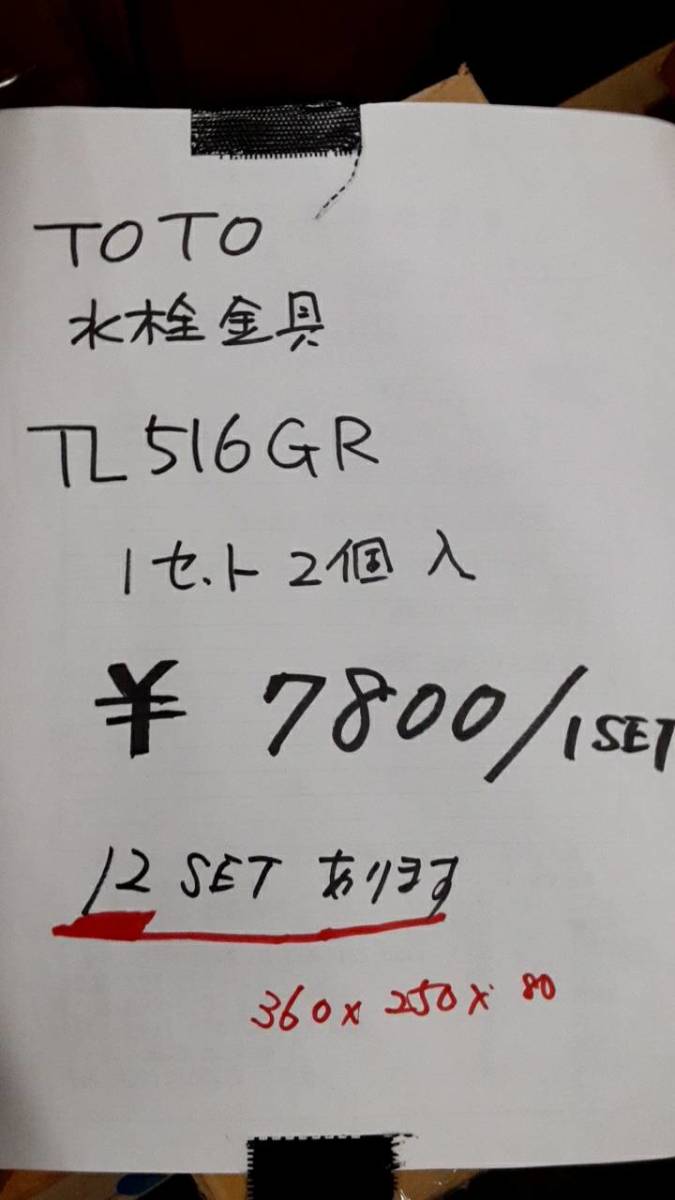 TOTO
水栓金具
TL516GR
1セット2個入
¥ 7800/1SET
12 SET あります
360x250x80